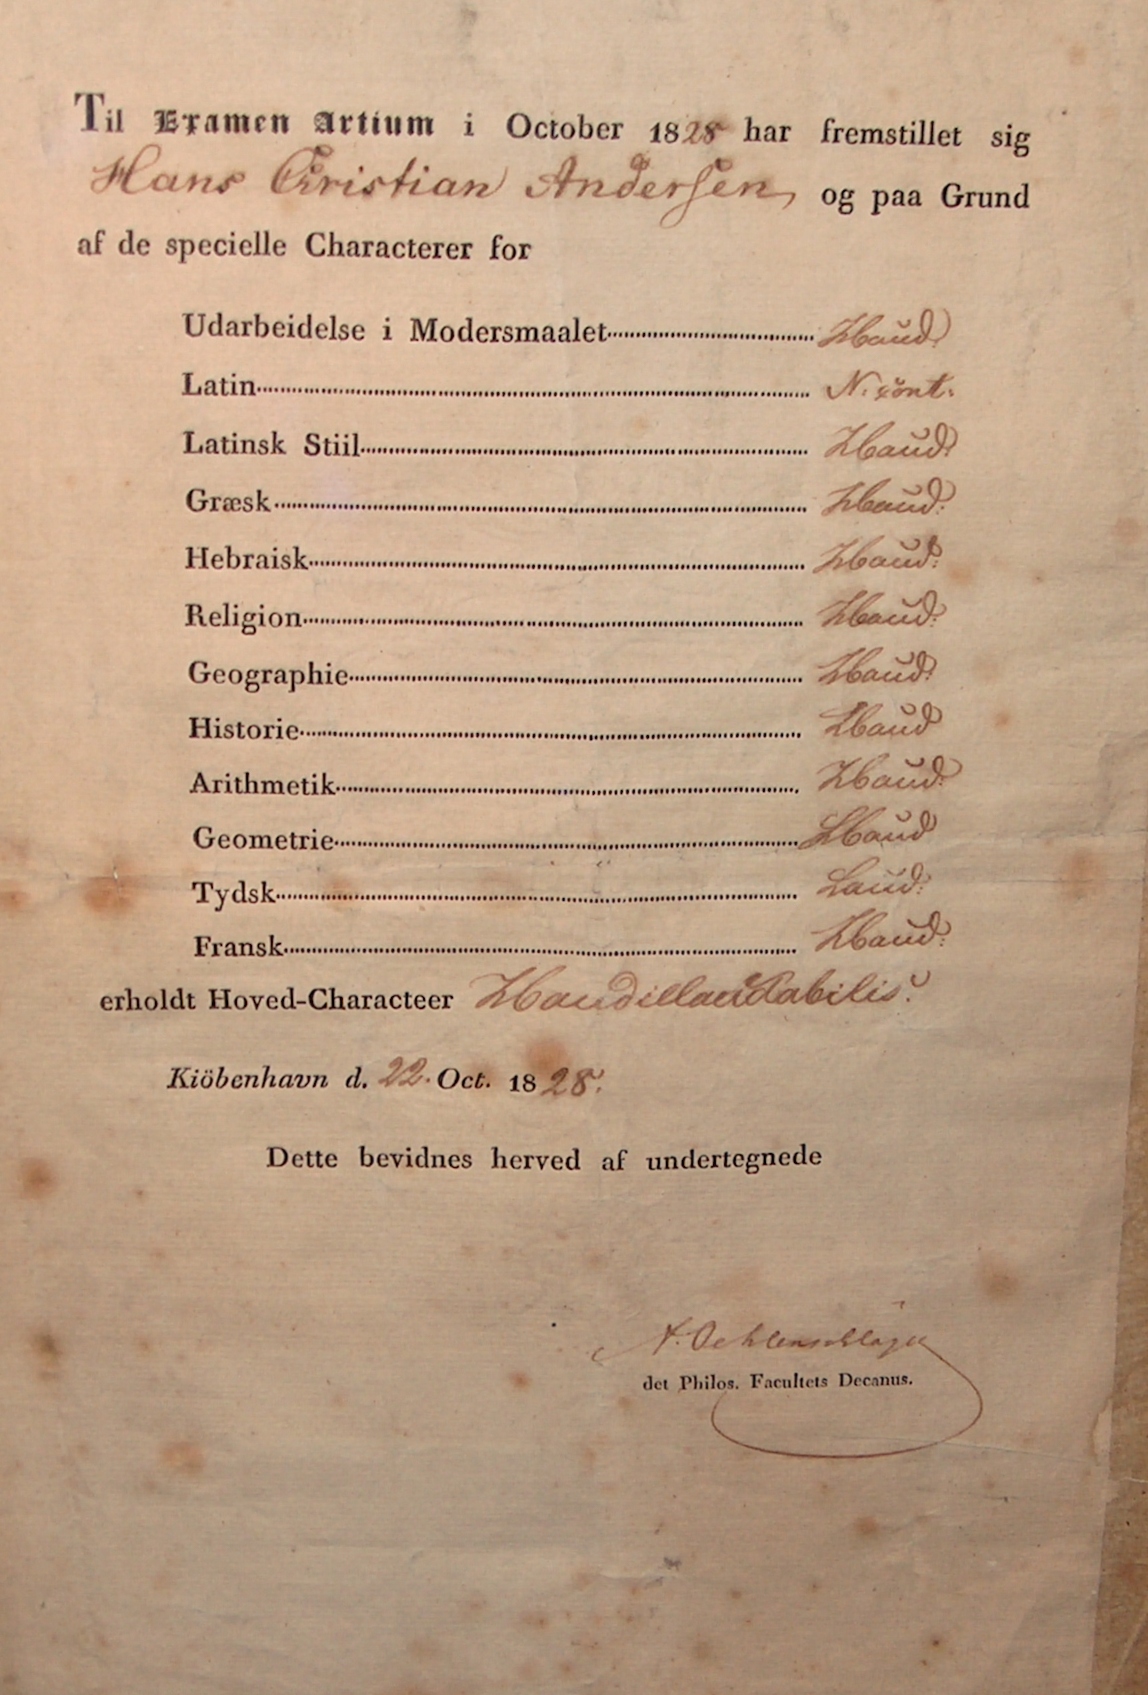 Til Examen Artium i October 1828 har fremstillet sig
Hans Christian Andersen, og paa Grund
af de specielle Characterer for
Udarbeidelse i Modersmaalet Haud.
Latin N. cont.
Latinsk Stiil Haud.
Græsk Haud.
Hebraisk Haud.
Religion Haud.
Geographie Haud.
Historie Haud
Arithmetik Haud.
Geometrie Haud
Tydsk Laud.
Fransk Haud.
erholdt Hoved-Characteer Haudillaudabilis.
Kiöbenhavn d. 22. Oct. 1828.
Dette bevidnes herved af undertegnede
A. Oehlenschläger
det Philos. Facultets Decanus.